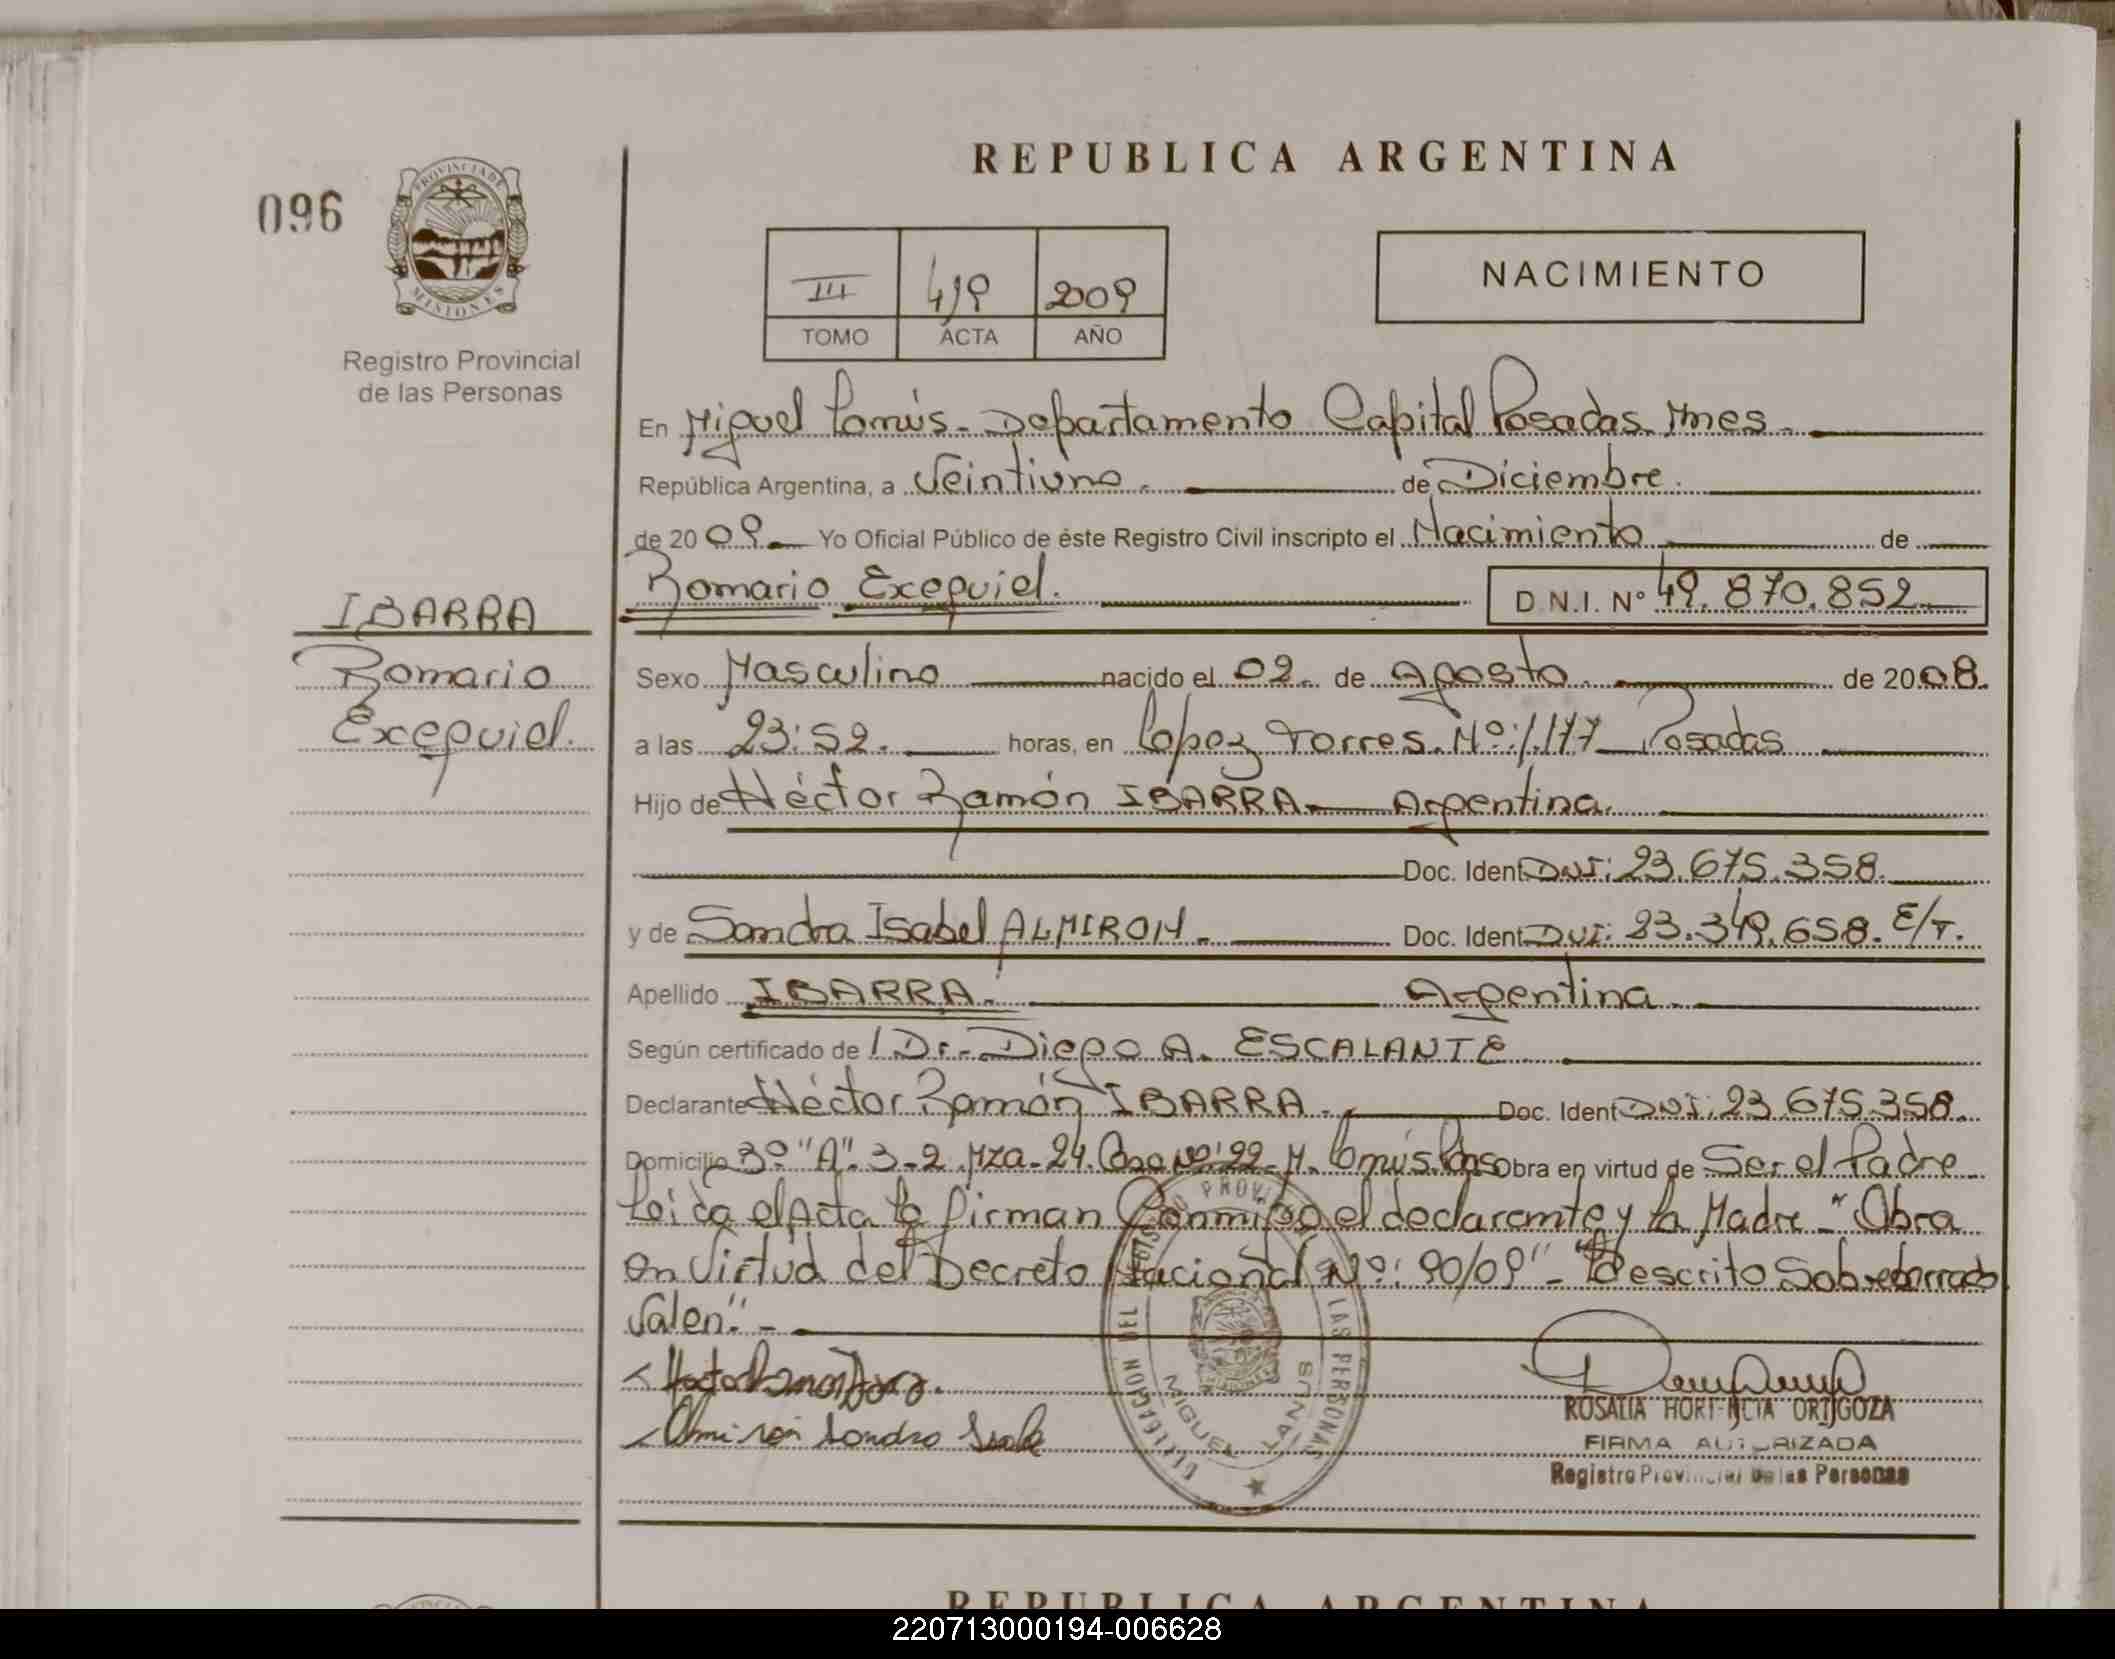 REPUBLICA ARGENTINA
096
PROVINCIA DE
MISIONES
Registro Provincial
de las Personas
III 419 2009
TOMO ACTA AÑO
NACIMIENTO
En Miguel Lanús - Departamento Capital Posadas Mnes -
República Argentina, a Veintiuno. de Diciembre.
de 2009 Yo Oficial Público de éste Registro Civil inscripto el Nacimiento de
Romario Exequiel. D.N.I. Nº 49.870.852
IBARRA
Romario
Exequiel.
Sexo Masculino nacido el 02. de Agosto. de 2008.
a las 23:52. horas, en Lopez Torres Nº: 1.177 Posadas
Hijo de Héctor Ramón IBARRA Argentina.
Doc. Ident DNI: 23.675.358.
y de Sandra Isabel ALMIRON - Doc. Ident DNI: 23.349.658. E/T.
Apellido IBARRA. Argentina
Según certificado de Dr. Diego A. ESCALANTE
Declarante Héctor Ramón IBARRA. Doc. Ident DNI: 23.675.358.
Domicilio 3º "A". 3-2 Mza-24. Casa Nº: 22- M. Lanús Obra en virtud de Ser el Padre
Leida el Acta la firman Conmigo el declarante y la Madre - "Obra
en Virtud del Decreto Nacional Nº: 90/09" - escrito Sobreborrado
Valen". -
Almirón Sandra
DELEGACION DEL REGISTRO PROVINCIAL DE LAS PERSONAS
MIGUEL LANUS
ROSALIA HORTENCIA ORTIGOZA
FIRMA AUTORIZADA
Registro Provincial de las Personas
REPUBLICA ARGENTINA
220713000194-006628